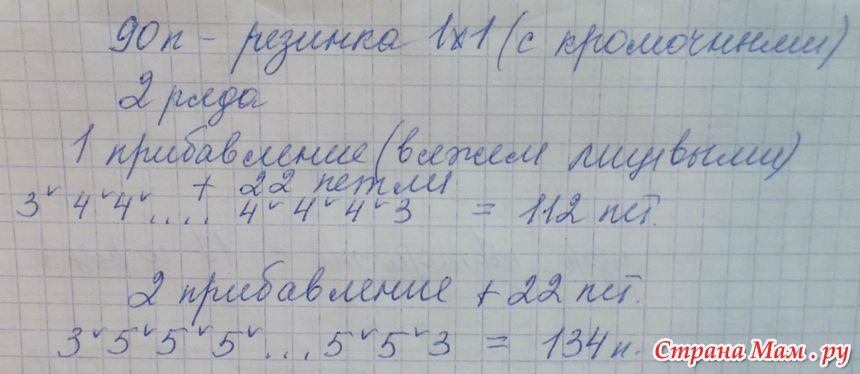 90п - резинка 1х1 (с кромочными)
2 ряда
1 прибавление (вяжем лицевыми)
+ 22 петли
3ˇ 4ˇ4ˇ.... 4ˇ4ˇ4ˇ3 = 112 пет.
2 прибавление + 22 пет.
3ˇ5ˇ5ˇ5ˇ...5ˇ5ˇ3 = 134 п.
Страна Мам.ру